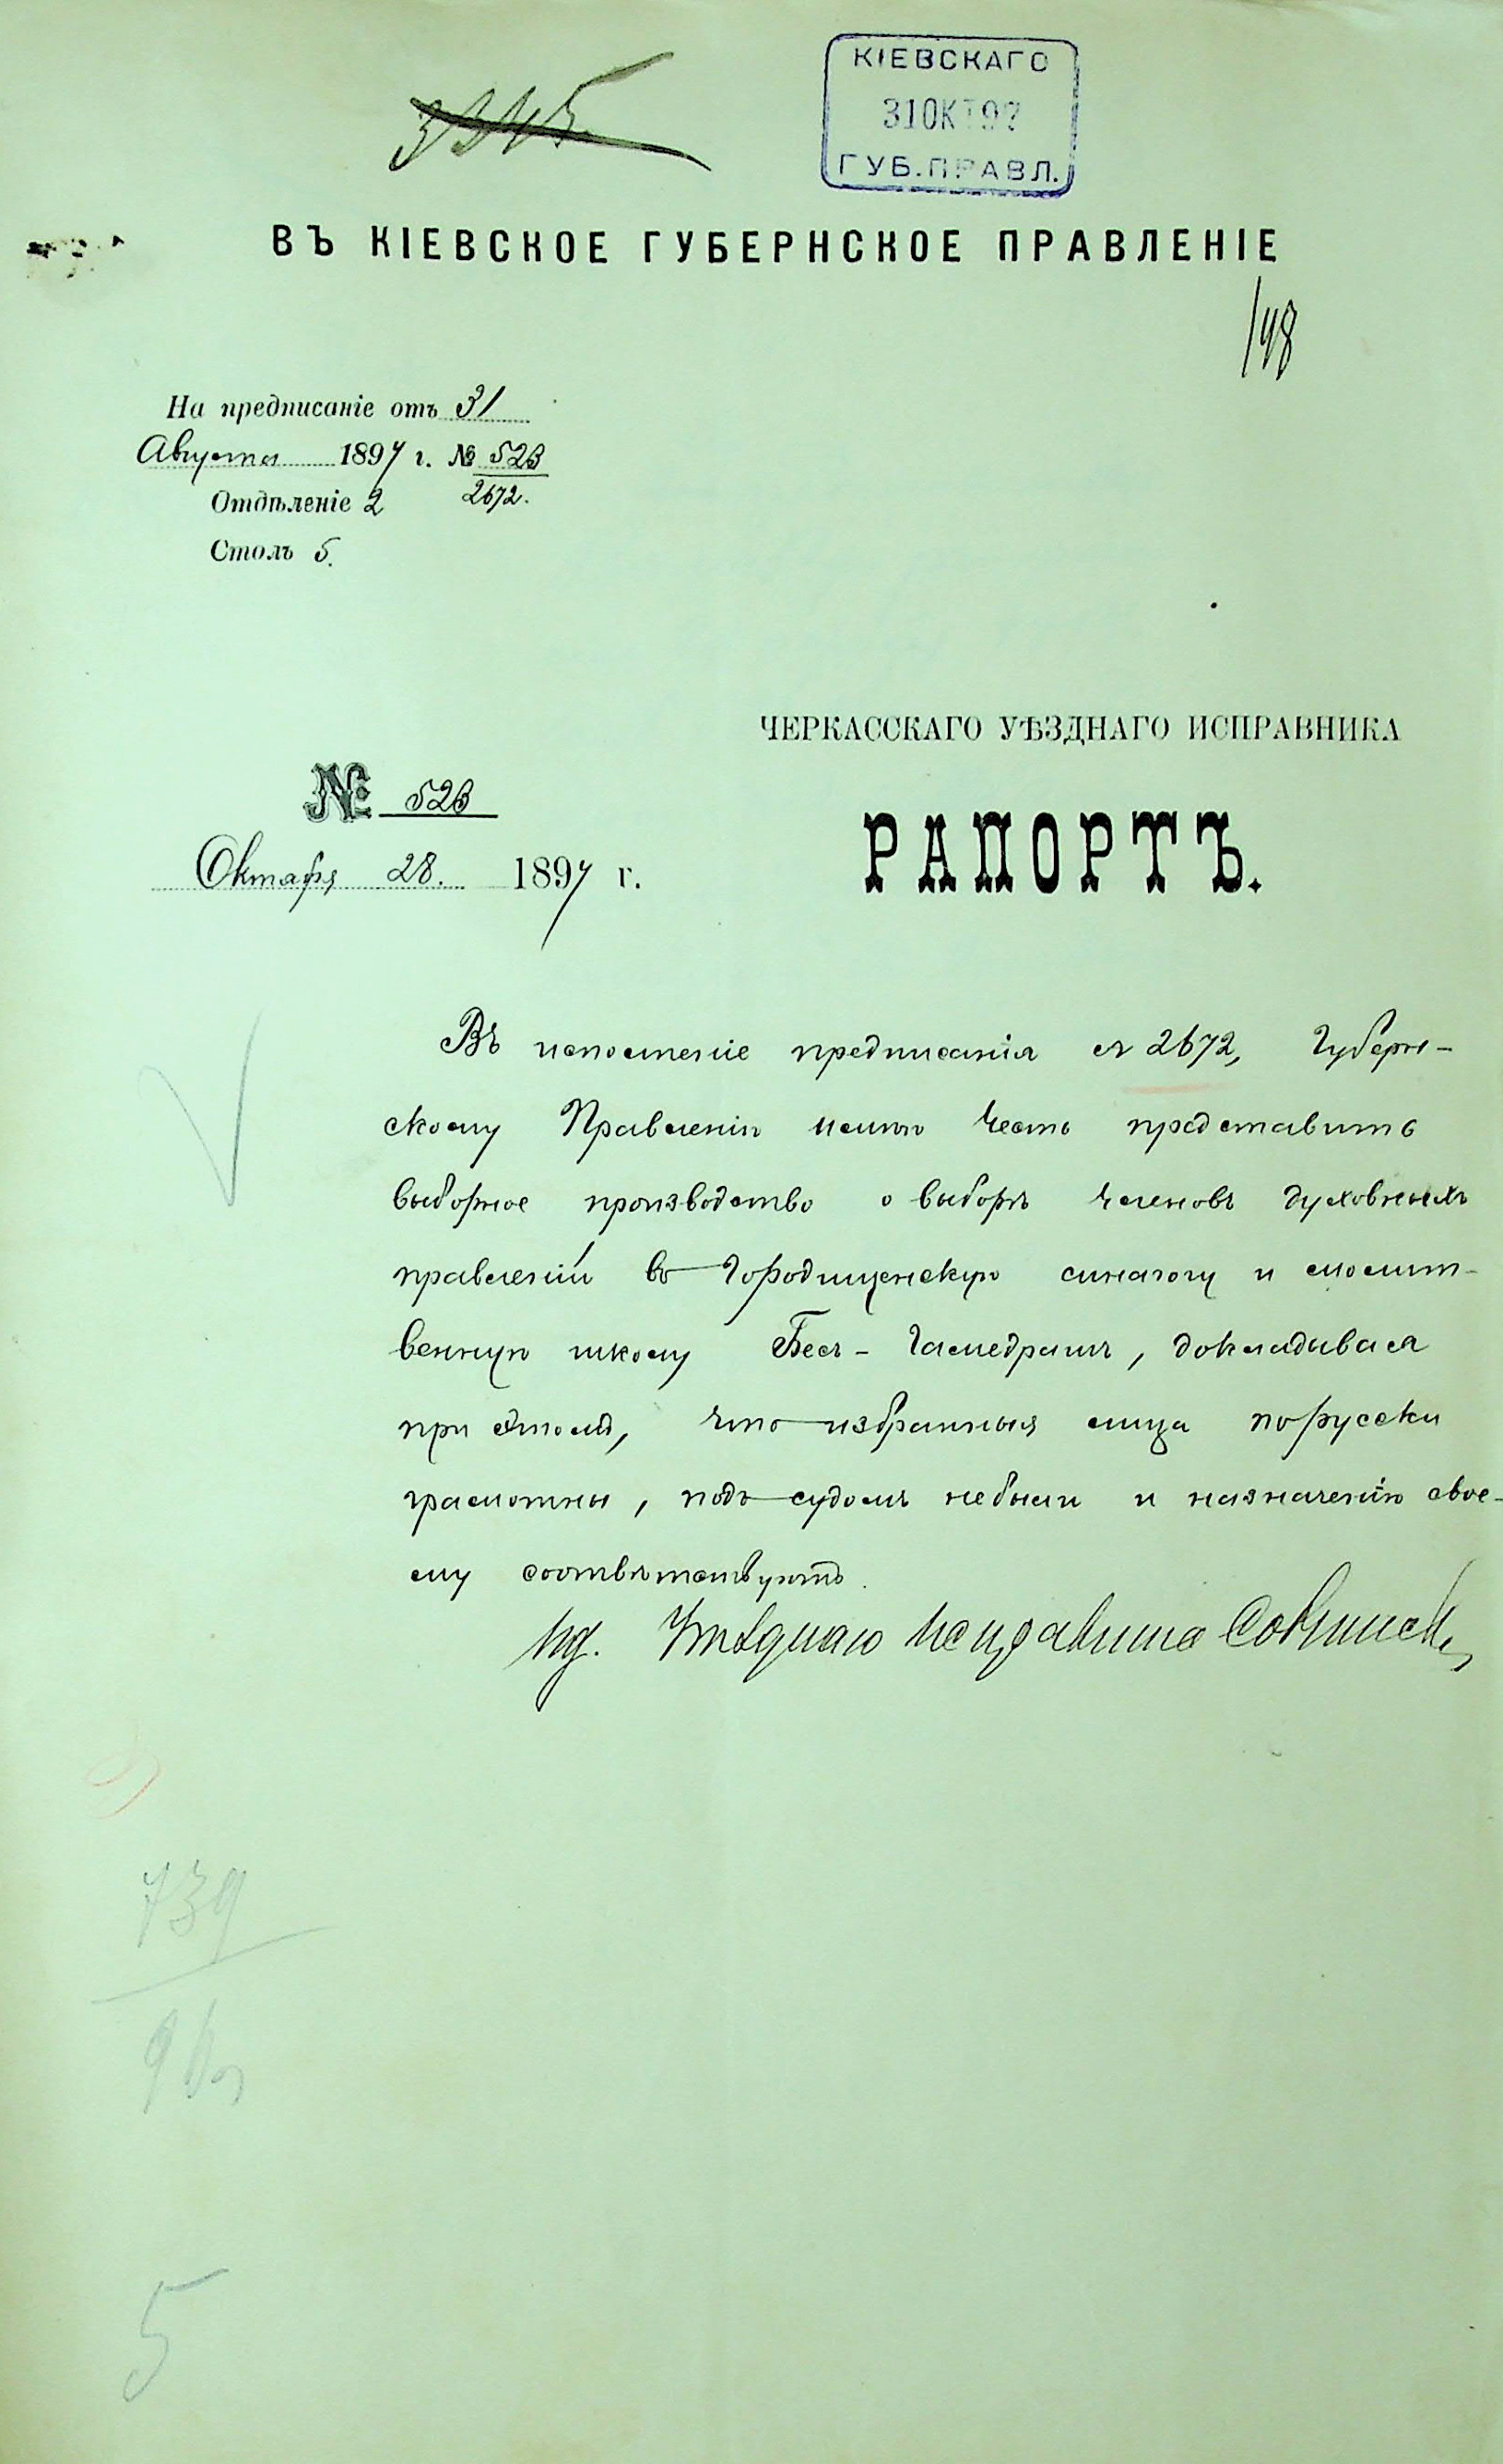 3345
КІЕВСКАГО
31 ОКТ 97
ГУБ. ПРАВЛ.
ВЪ КІЕВСКОЕ ГУБЕРНСКОЕ ПРАВЛЕНІЕ
148
На предписаніе отъ 31
Августа 1897 г. № 523
2672.
Отдѣленіе 2
Столъ 5.
ЧЕРКАССКАГО УѢЗДНАГО ИСПРАВНИКА
№ 523
РАПОРТЪ.
Октября 28. 1897 г.
Въ исполненіе предписанія № 2672, Губерн-
скому Правленію имѣю честь представить
выборное производство о выборѣ членовъ духовныхъ
правленій въ Городищенскую синагогу и молит-
венную школу Бес-Гамедрашъ, докладывая
при этомъ, что избранныя лица порусски
грамотны, подъ судомъ небыли и назначенію свое-
му соотвѣтствуютъ.
Ид. Уѣзднаго Исправника
739
5